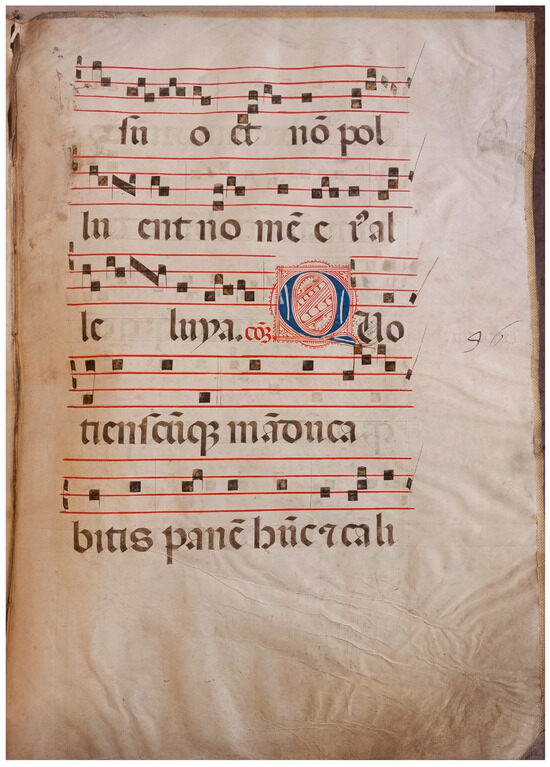 su o et nō pol
lu ent no mē e iꝰ al
le luya. cōꝫ. Quo
96
tienscūqꝫ māduca
bitis panē hūc ⁊ cali